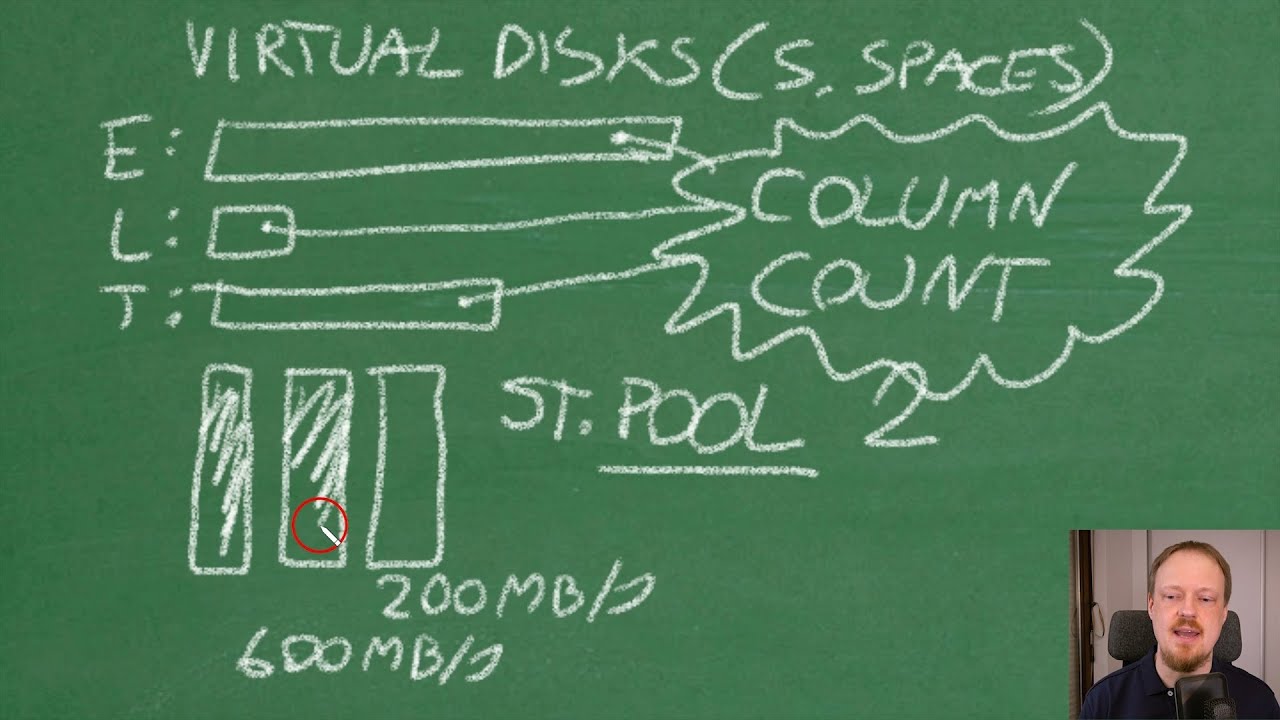 VIRTUAL DISKS (S. SPACES)
E:
L:
T:
COLUMN
COUNT
ST. POOL 2
200MB/s
600MB/s